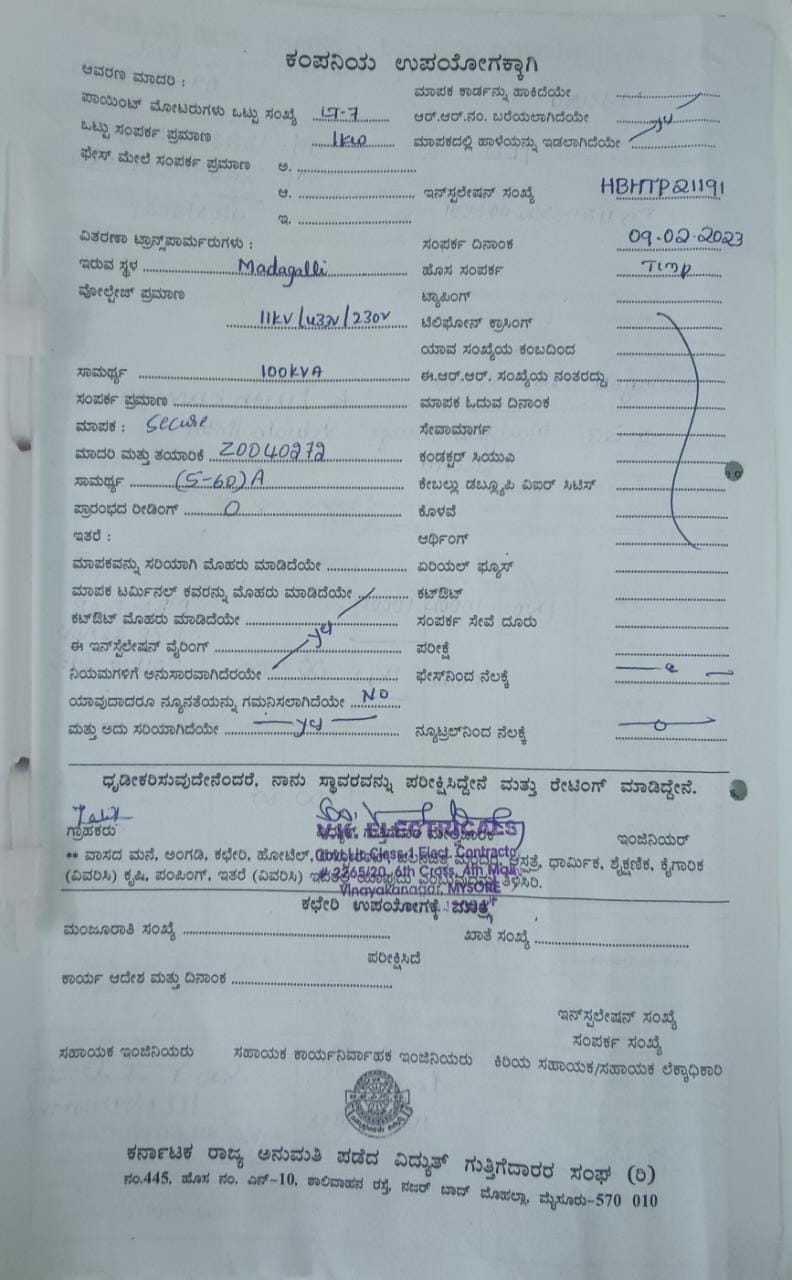 ಕಂಪನಿಯ ಉಪಯೋಗಕ್ಕಾಗಿ
ಆವರಣ ಮಾದರಿ :
ಮಾಪಕ ಕಾರ್ಡನ್ನು ಹಾಕಿದೆಯೇ
ಪಾಯಿಂಟ್ ಮೋಟರುಗಳು ಒಟ್ಟು ಸಂಖ್ಯೆ LT-7 ಆರ್.ಆರ್.ನಂ. ಬರೆಯಲಾಗಿದೆಯೇ
ಒಟ್ಟು ಸಂಪರ್ಕ ಪ್ರಮಾಣ 1KW ಮಾಪಕದಲ್ಲಿ ಹಾಳೆಯನ್ನು ಇಡಲಾಗಿದೆಯೇ
ಫೇಸ್ ಮೇಲೆ ಸಂಪರ್ಕ ಪ್ರಮಾಣ ಅ.
ಆ. ಇನ್ಸ್ಟಲೇಷನ್ ಸಂಖ್ಯೆ HBHTP21191
ಇ.
ವಿತರಣಾ ಟ್ರಾನ್ಸ್‌ಪಾರ್ಮರುಗಳು : ಸಂಪರ್ಕ ದಿನಾಂಕ 09.02.2023
ಇರುವ ಸ್ಥಳ Madagalli ಹೊಸ ಸಂಪರ್ಕ Temp
ವೋಲ್ಟೇಜ್ ಪ್ರಮಾಣ ಟ್ಯಾಪಿಂಗ್
11KV/433V/230V ಟೆಲಿಫೋನ್ ಕ್ರಾಸಿಂಗ್
ಯಾವ ಸಂಖ್ಯೆಯ ಕಂಬದಿಂದ
ಸಾಮರ್ಥ್ಯ 100KVA ಈ.ಆರ್.ಆರ್. ಸಂಖ್ಯೆಯ ನಂತರದ್ದು
ಸಂಪರ್ಕ ಪ್ರಮಾಣ ಮಾಪಕ ಓದುವ ದಿನಾಂಕ
ಮಾಪಕ : Secure ಸೇವಾಮಾರ್ಗ
ಮಾದರಿ ಮತ್ತು ತಯಾರಿಕೆ Z0040272 ಕಂಡಕ್ಟರ್ ಸಿಯುವಿ
ಸಾಮರ್ಥ್ಯ (5-60)A ಕೇಬಲ್ಲು ಡಬ್ಲ್ಯೂಪಿ ವಿಐರ್ ಸಿಟಿಸ್
ಪ್ರಾರಂಭದ ರೀಡಿಂಗ್ 0 ಕೊಳವೆ
ಇತರೆ : ಆರ್ಥಿಂಗ್
ಮಾಪಕವನ್ನು ಸರಿಯಾಗಿ ಮೊಹರು ಮಾಡಿದೆಯೇ ಏರಿಯಲ್ ಫ್ಯೂಸ್
ಮಾಪಕ ಟರ್ಮಿನಲ್ ಕವರನ್ನು ಮೊಹರು ಮಾಡಿದೆಯೇ ಕಟ್‌ಔಟ್
ಕಟ್‌ಔಟ್ ಮೊಹರು ಮಾಡಿದೆಯೇ ಸಂಪರ್ಕ ಸೇವೆ ದೂರು
ಈ ಇನ್‌ಸ್ಟೆಲೆಷನ್ ವೈರಿಂಗ್ ಪರೀಕ್ಷೆ
ನಿಯಮಗಳಿಗೆ ಅನುಸಾರವಾಗಿದೆರಯೇ ಫೇಸ್‌ನಿಂದ ನೆಲಕ್ಕೆ
ಯಾವುದಾದರೂ ನ್ಯೂನತೆಯನ್ನು ಗಮನಿಸಲಾಗಿದೆಯೇ NO
ಮತ್ತು ಅದು ಸರಿಯಾಗಿದೆಯೇ ನ್ಯೂಟ್ರಲ್‌ನಿಂದ ನೆಲಕ್ಕೆ 0
ಧೃಡೀಕರಿಸುವುದೇನೆಂದರೆ, ನಾನು ಸ್ಥಾವರವನ್ನು ಪರೀಕ್ಷಿಸಿದ್ದೇನೆ ಮತ್ತು ರೇಟಿಂಗ್ ಮಾಡಿದ್ದೇನೆ.
ಗ್ರಾಹಕರು ELECTRICALS ಇಂಜಿನಿಯರ್
** ವಾಸದ ಮನೆ, ಅಂಗಡಿ, ಕಛೇರಿ, ಹೋಟೆಲ್, ಆಸ್ಪತ್ರೆ, ಧಾರ್ಮಿಕ, ಶೈಕ್ಷಣಿಕ, ಕೈಗಾರಿಕ
Class-1 Elect. Contractor
(ವಿವರಿಸಿ) ಕೃಷಿ, ಪಂಪಿಂಗ್, ಇತರೆ (ವಿವರಿಸಿ) ತಿಳಿಸಿರಿ.
# 2265/20, 6th Cross, 4th Main,
Vinayakanagar, MYSORE
ಕಛೇರಿ ಉಪಯೋಗಕ್ಕೆ ಮಾತ್ರ
ಮಂಜೂರಾತಿ ಸಂಖ್ಯೆ ಖಾತೆ ಸಂಖ್ಯೆ
ಪರೀಕ್ಷಿಸಿದೆ
ಕಾರ್ಯ ಆದೇಶ ಮತ್ತು ದಿನಾಂಕ
ಇನ್‌ಸ್ಪಲೇಷನ್ ಸಂಖ್ಯೆ
ಸಂಪರ್ಕ ಸಂಖ್ಯೆ
ಸಹಾಯಕ ಇಂಜಿನಿಯರು ಸಹಾಯಕ ಕಾರ್ಯನಿರ್ವಾಹಕ ಇಂಜಿನಿಯರು ಕಿರಿಯ ಸಹಾಯಕ/ಸಹಾಯಕ ಲೆಕ್ಕಾಧಿಕಾರಿ
ಕರ್ನಾಟಕ ರಾಜ್ಯ ಅನುಮತಿ ಪಡೆದ ವಿದ್ಯುತ್ ಗುತ್ತಿಗೆದಾರರ ಸಂಘ (ರಿ)
ನಂ.445, ಹೊಸ ನಂ. ಎನ್-10, ಶಾಲಿವಾಹನ ರಸ್ತೆ, ನಜರ್ ಬಾದ್ ಮೊಹಲ್ಲಾ, ಮೈಸೂರು-570 010